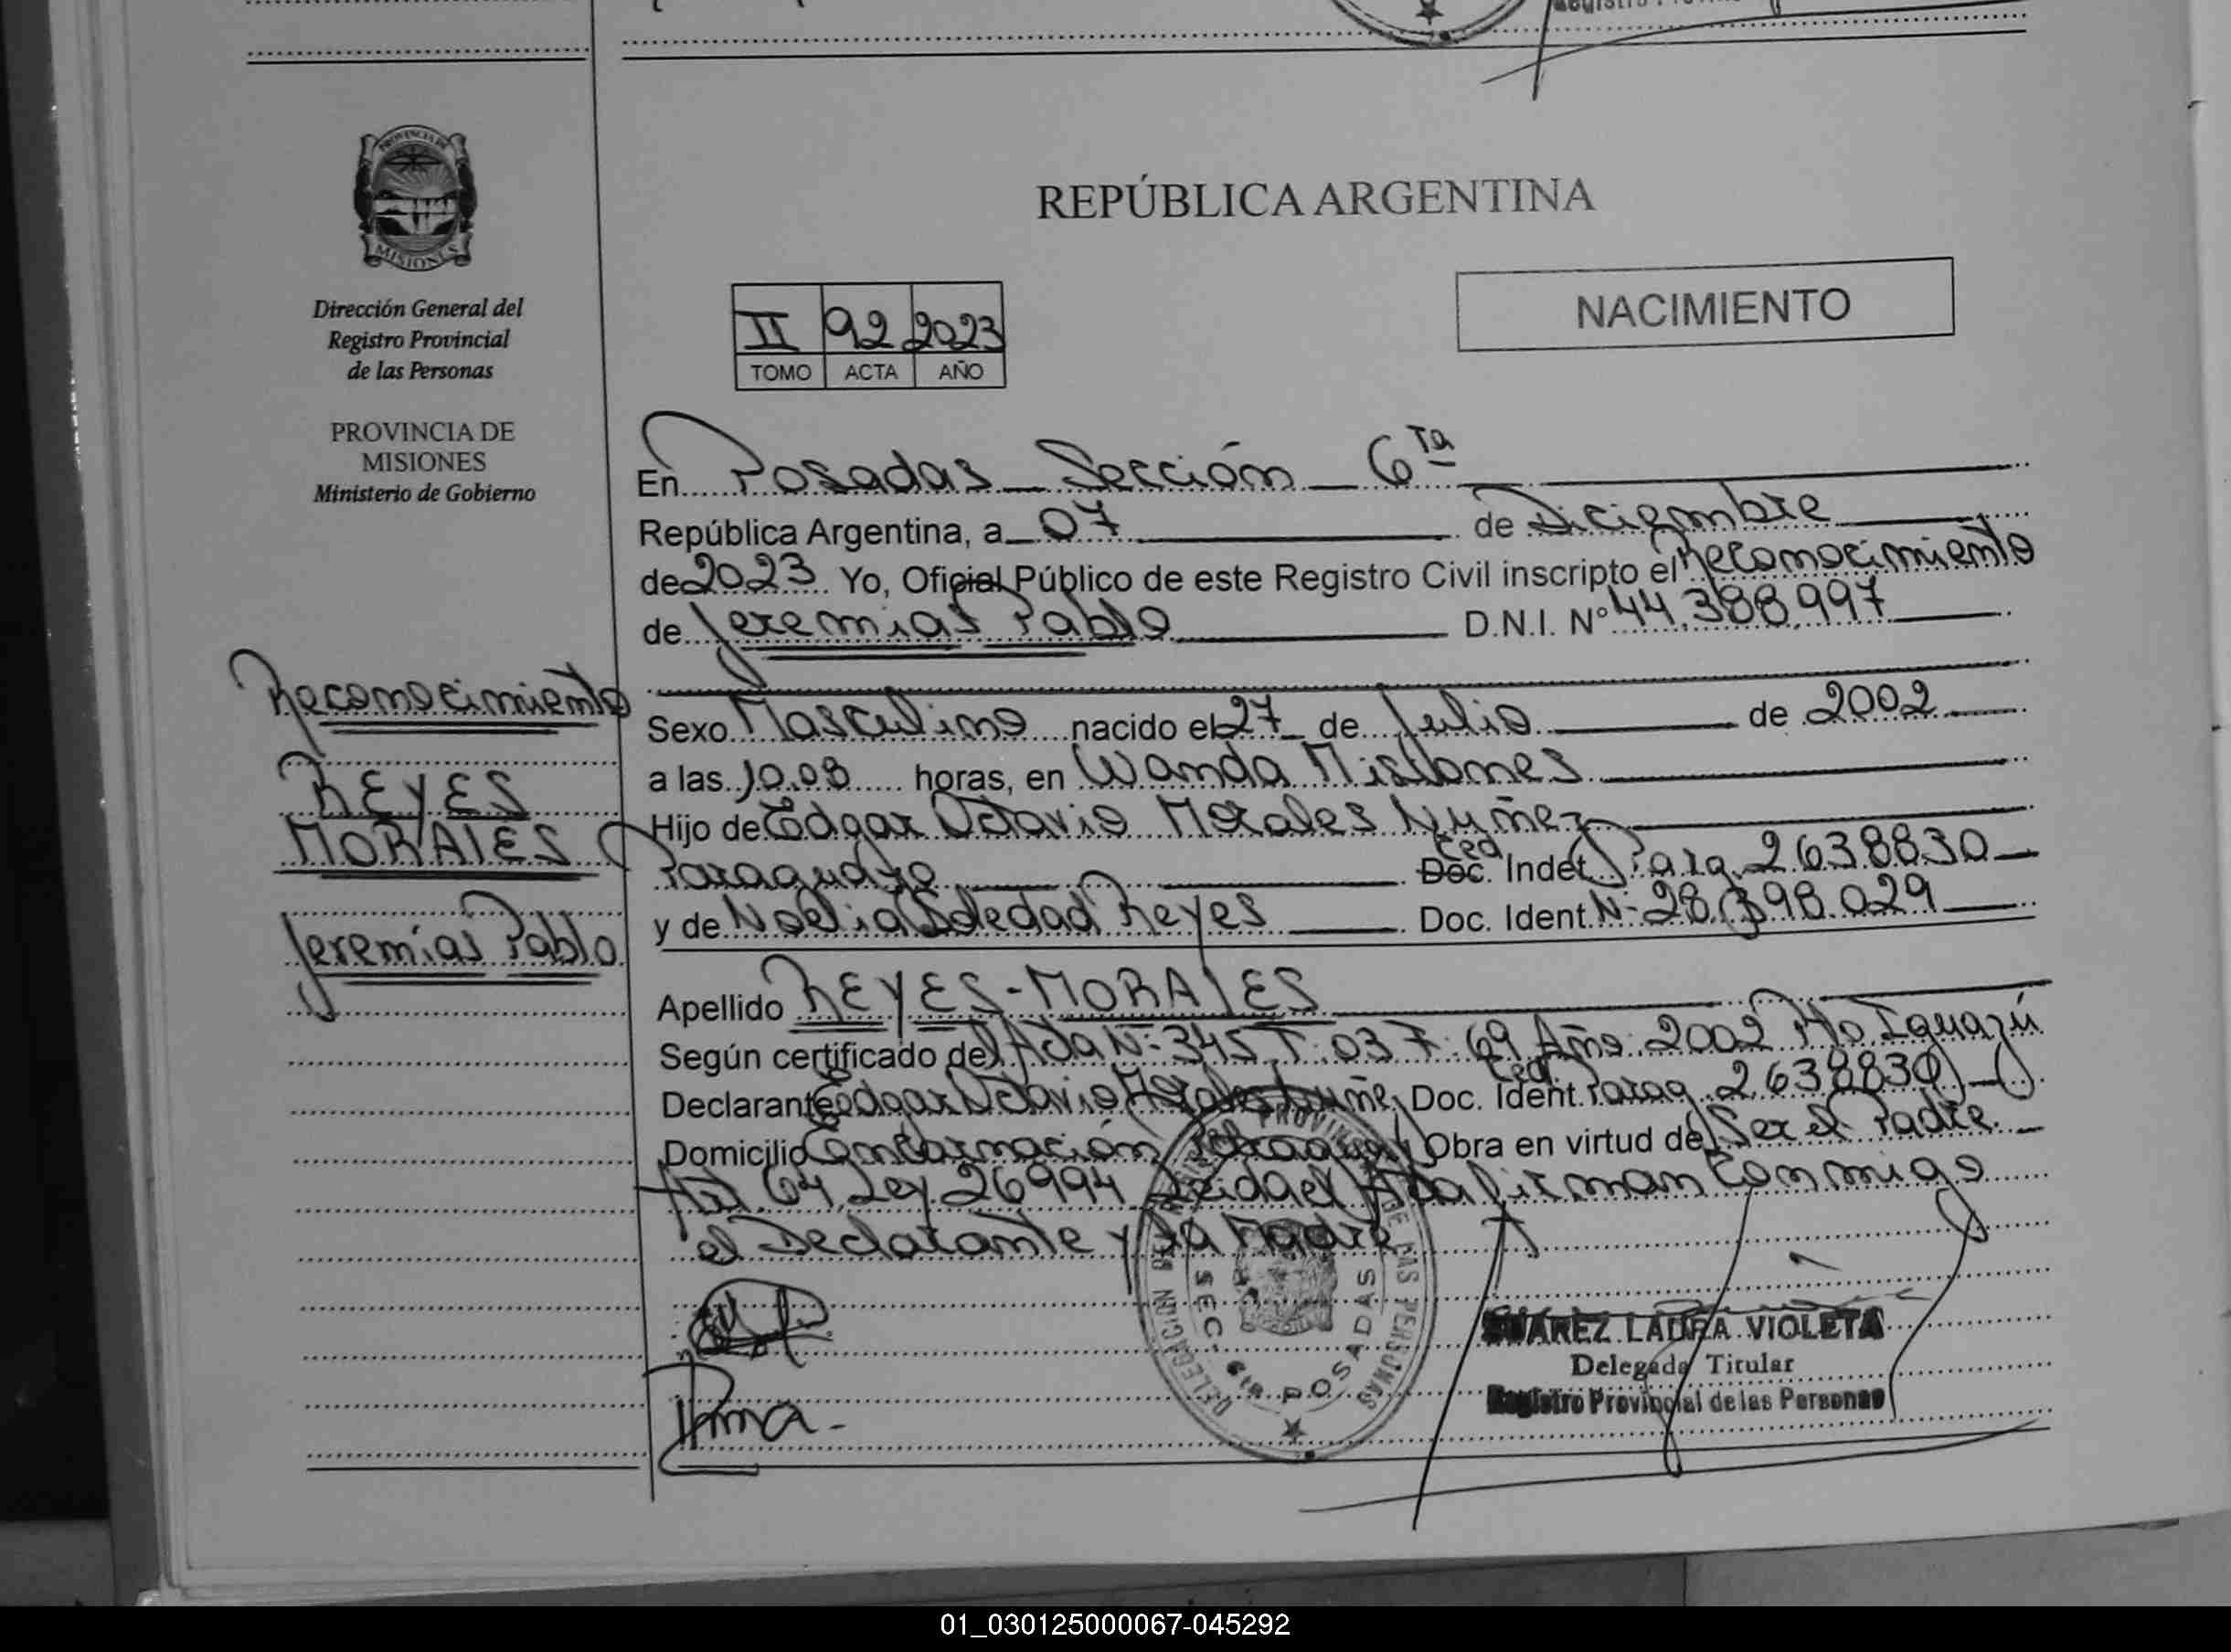 PROVINCIA DE
MISIONES
Dirección General del
Registro Provincial
de las Personas
PROVINCIA DE
MISIONES
Ministerio de Gobierno
Reconocimiento
REYES
MORALES
Jeremías Pablo
REPÚBLICA ARGENTINA
NACIMIENTO
II 92 2023
TOMO ACTA AÑO
En Posadas Sección 6ta
República Argentina, a 07 de Diciembre
de 2023 Yo, Oficial Público de este Registro Civil inscripto el Reconocimiento
de Jeremias Pablo D.N.I. Nº 44.388.997
Sexo Masculino nacido el 27 de Julio de 2002
a las 10.08 horas, en Wanda Misiones
Hijo de Edgar Octavio Morales Nuñez
Ced
Paraguayo Doc. Indet. Parag 2638830
y de Noelia Soledad Reyes Doc. Ident. N- 28.398.029
Apellido REYES-MORALES
Según certificado de Acta N- 345 T. 03 F. 69 Año 2002 Pto Iguazú
Ced.
Declarante Edgar Octavio Morales Nuñez Doc. Ident. Parag 2638830
Domicilio Encarnación Paraguay Obra en virtud de Ser el Padre.
Art. 64 Ley 26994 Leida el Acta firman conmigo
el Declarante y la Madre
DELEGACIÓN DEL PROVINCIAL DE LAS PERSONAS
SEC. 6ta POSADAS
SUAREZ LAURA VIOLETA
Delegada Titular
Registro Provincial de las Personas
01_030125000067-045292